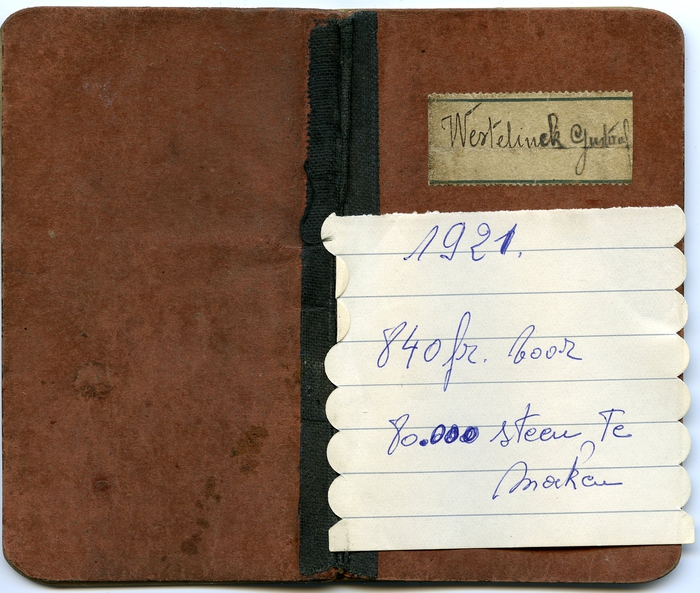 Westelinck Gustaaf
1921.
840 fr. voor
80.000 steen te
maken